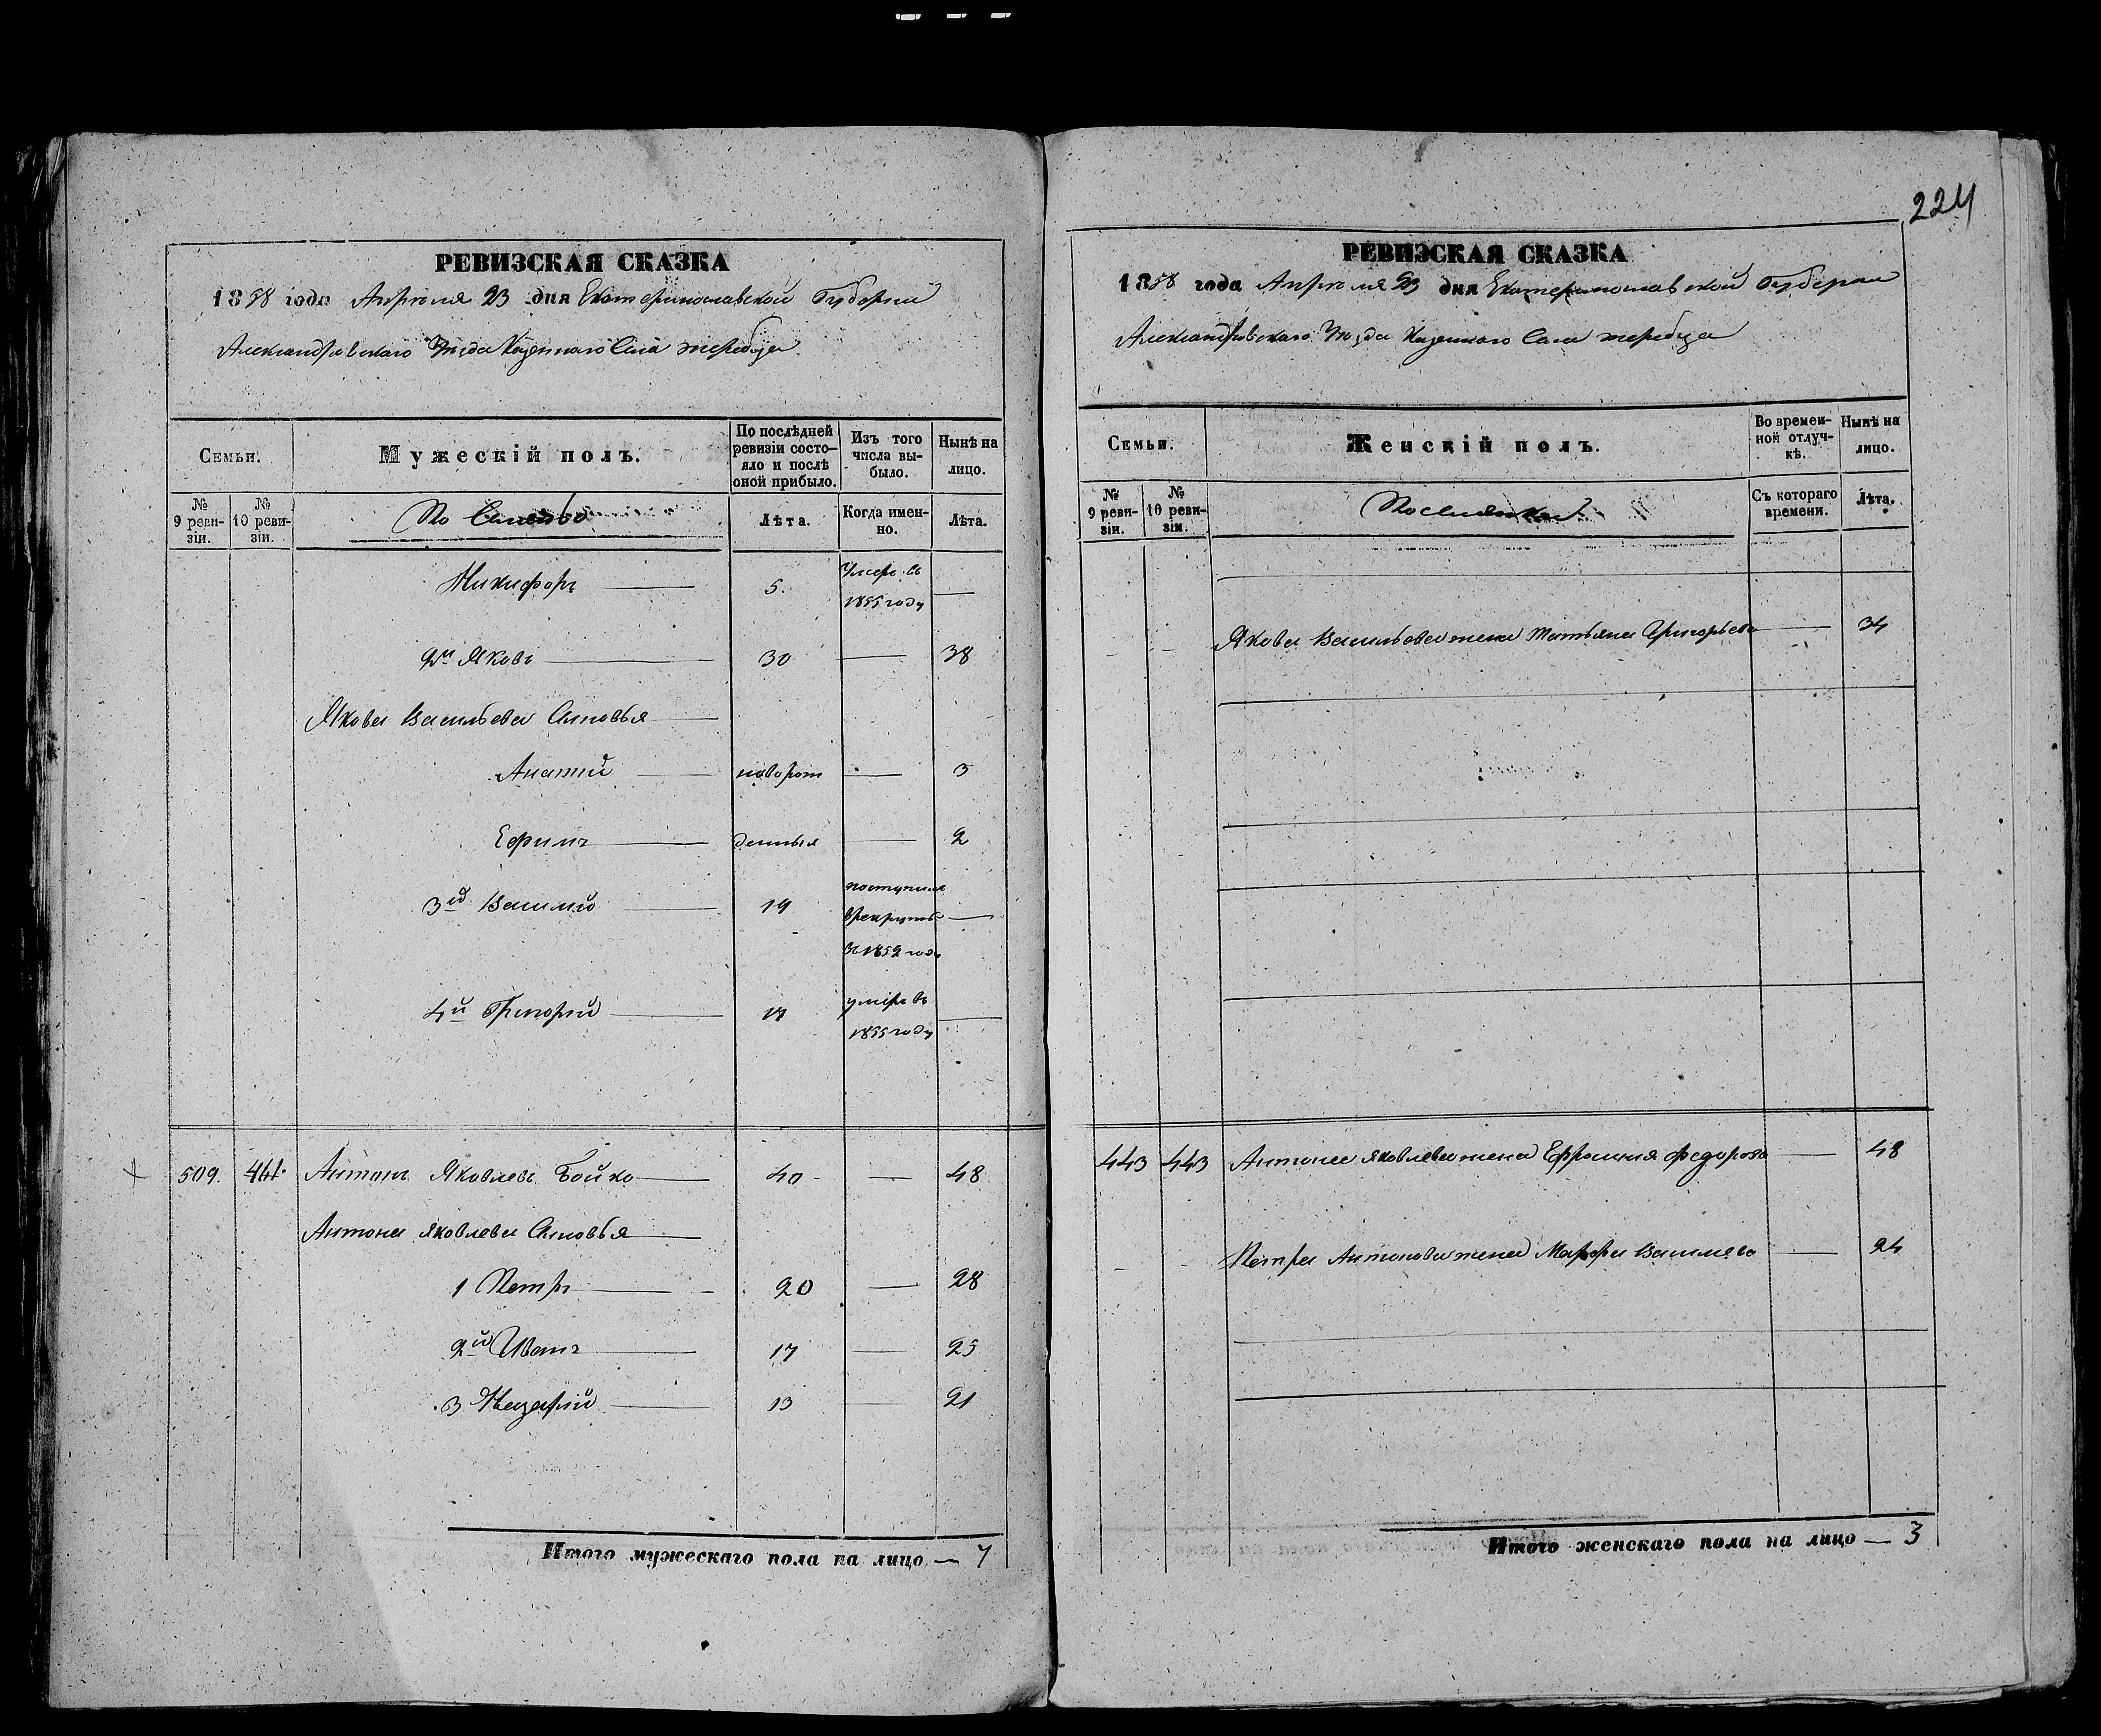 224
РЕВИЗСКАЯ СКАЗКА
1858 года Апреля 23 дня Екатеринославской Губернии
Александровскаго Уезда Казеннаго Села жеребца
Семьи.
Мужескій полъ.
По послѣдней ревизіи состояло и послѣ оной прибыло.
Изъ того числа выбыло.
Нынѣ на лицо.
№ 9 ревизіи.
№ 10 ревизіи.
Лѣта.
Когда именно.
Лѣта.
Никифоръ 5. Умеръ въ 1855 году
2й Яковъ 30 38
Якова Васильева Сыновья
новорож 3
Ефимъ денныя 2
3й Василий 19 поступилъ в рекруты в 1852 году
4й Григорий 17 умеръ въ 1855 году
509. 444. Антонъ Яковлевъ Бойко 40 48
Антона Яковлева Сыновья
1 Петръ 20 28
2й Иванъ 17 25
3 Назарий 13 21
Итого мужескаго пола на лицо — 7
РЕВИЗСКАЯ СКАЗКА
1858 года Апреля 23 дня Екатеринославской Губернии
Александровскаго Уезда Казеннаго Села жеребца
Семьи.
Женскій полъ.
Во временной отлучкѣ.
Нынѣ на лицо.
№ 9 ревизіи.
№ 10 ревизіи.
Съ котораго времени.
Лѣта.
Якова Васильева жена Татьяна Григорьева 34
443 443 Антона Яковлева жена Ефросиния Федорова 48
Петра Антонова жена Марфа Василева 24
Итого женскаго пола на лицо — 3